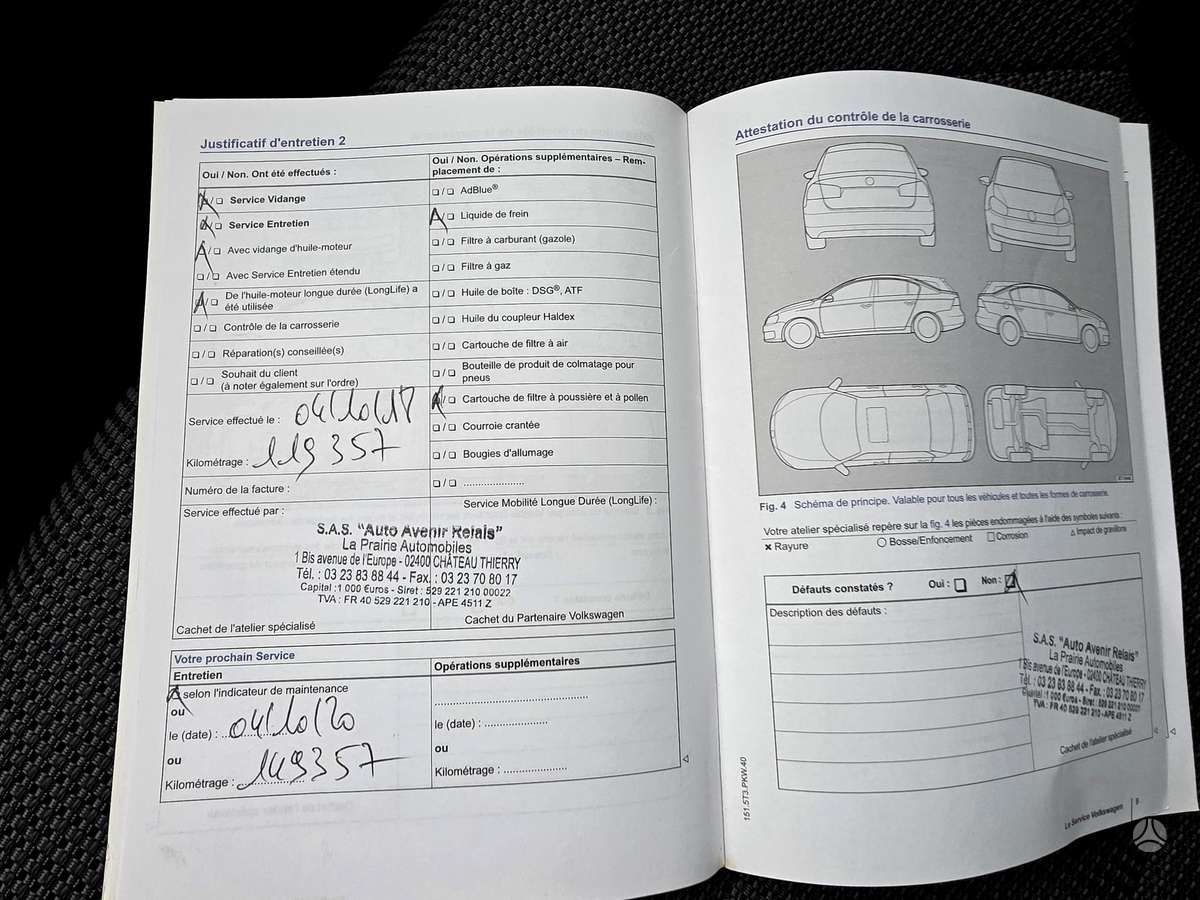 Justificatif d'entretien 2
Oui / Non. Ont été effectués :
/ Service Vidange
/ Service Entretien
/ Avec vidange d'huile-moteur
❑ / ❑ Avec Service Entretien étendu
/ De l'huile-moteur longue durée (LongLife) a
été utilisée
❑ / ❑ Contrôle de la carrosserie
❑ / ❑ Réparation(s) conseillée(s)
❑ / ❑ Souhait du client
(à noter également sur l'ordre)
Service effectué le : 04/10/18
Kilométrage : 119357
Numéro de la facture :
Service effectué par :
Oui / Non. Opérations supplémentaires – Rem-
placement de :
❑ / ❑ AdBlue®
/ Liquide de frein
❑ / ❑ Filtre à carburant (gazole)
❑ / ❑ Filtre à gaz
❑ / ❑ Huile de boîte : DSG®, ATF
❑ / ❑ Huile du coupleur Haldex
❑ / ❑ Cartouche de filtre à air
❑ / ❑ Bouteille de produit de colmatage pour
pneus
/ Cartouche de filtre à poussière et à pollen
❑ / ❑ Courroie crantée
❑ / ❑ Bougies d'allumage
❑ / ❑ .....................
Service Mobilité Longue Durée (LongLife) :
S.A.S. "Auto Avenir Relais"
La Prairie Automobiles
1 Bis avenue de l'Europe - 02400 CHÂTEAU THIERRY
Tél. : 03 23 83 88 44 - Fax. : 03 23 70 80 17
Capital :1 000 €uros - Siret : 529 221 210 00022
TVA : FR 40 529 221 210 - APE 4511 Z
Cachet de l'atelier spécialisé
Cachet du Partenaire Volkswagen
Votre prochain Service
Entretien
selon l'indicateur de maintenance
ou
le (date) : 04/10/20
ou
Kilométrage : 149357
Opérations supplémentaires
le (date) : ....................
ou
Kilométrage : ....................
Attestation du contrôle de la carrosserie
Fig. 4 Schéma de principe. Valable pour tous les véhicules et toutes les formes de carrosserie.
Votre atelier spécialisé repère sur la fig. 4 les pièces endommagées à l'aide des symboles suivants :
× Rayure ○ Bosse/Enfoncement □ Corrosion △ Impact de gravillons
Défauts constatés ? Oui : ❑ Non :
Description des défauts :
S.A.S. "Auto Avenir Relais"
La Prairie Automobiles
1 Bis avenue de l'Europe - 02400 CHÂTEAU THIERRY
Tél. : 03 23 83 88 44 - Fax. : 03 23 70 80 17
Capital :1 000 €uros - Siret : 529 221 210 00022
TVA : FR 40 529 221 210 - APE 4511 Z
Cachet de l'atelier spécialisé
151.5T3.PKW.40
Le Service Volkswagen 9